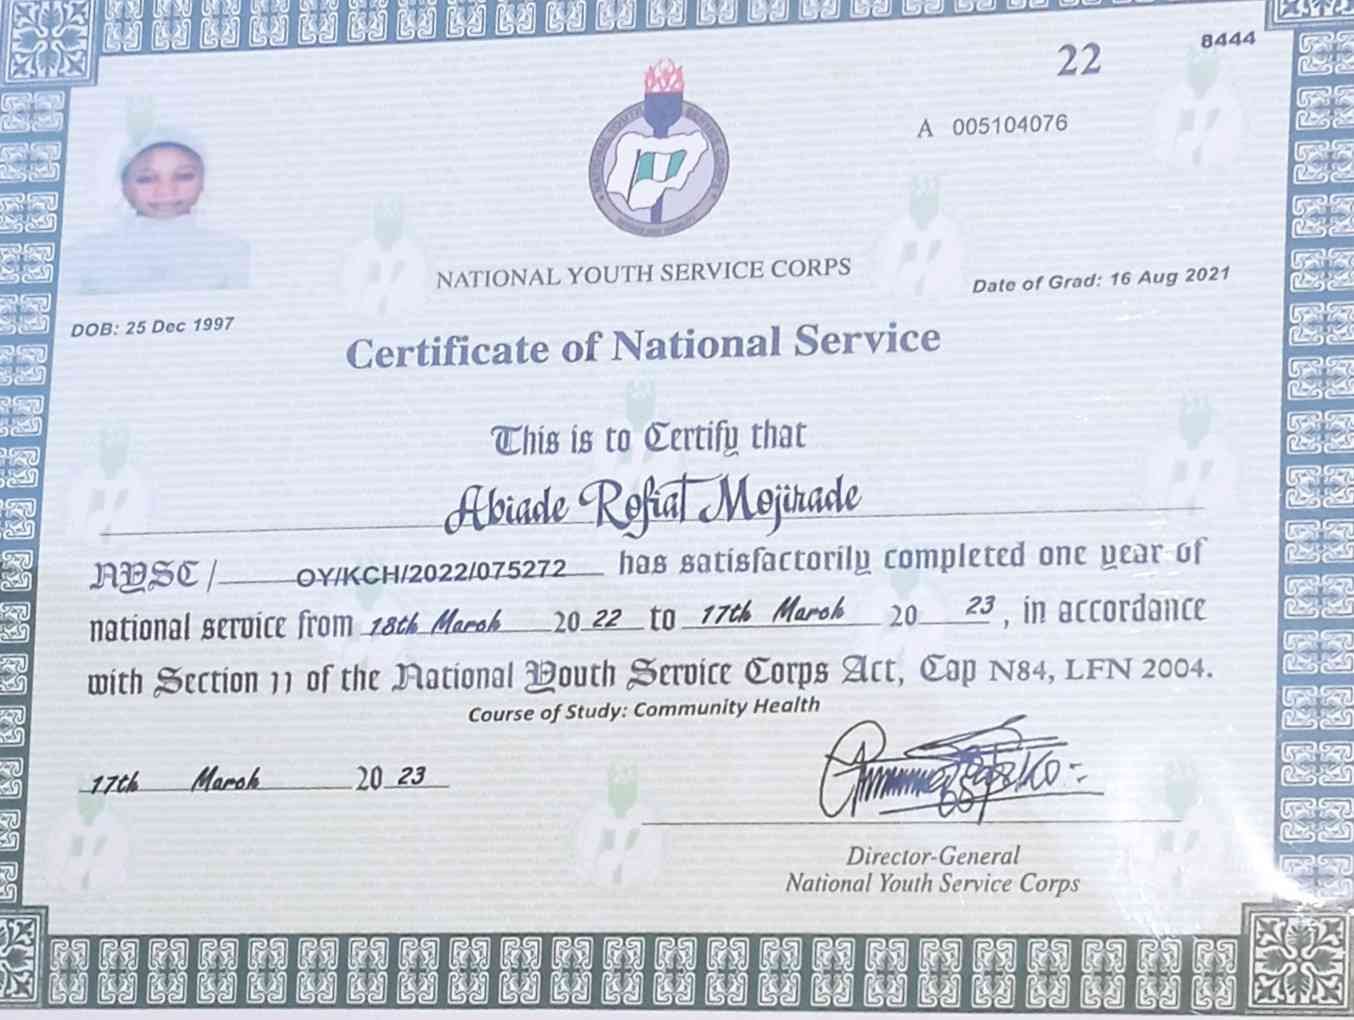 22
8444
A 005104076
NATIONAL YOUTH SERVICE CORPS
Date of Grad: 16 Aug 2021
DOB: 25 Dec 1997
Certificate of National Service
This is to Certify that
Abiade Rofiat Mojirade
NYSC/ OY/KCH/2022/075272 has satisfactorily completed one year of
national service from 18th March 2022 to 17th March 2023, in accordance
with Section 11 of the National Youth Service Corps Act, Cap N84, LFN 2004.
Course of Study: Community Health
17th March 2023
Director-General
National Youth Service Corps